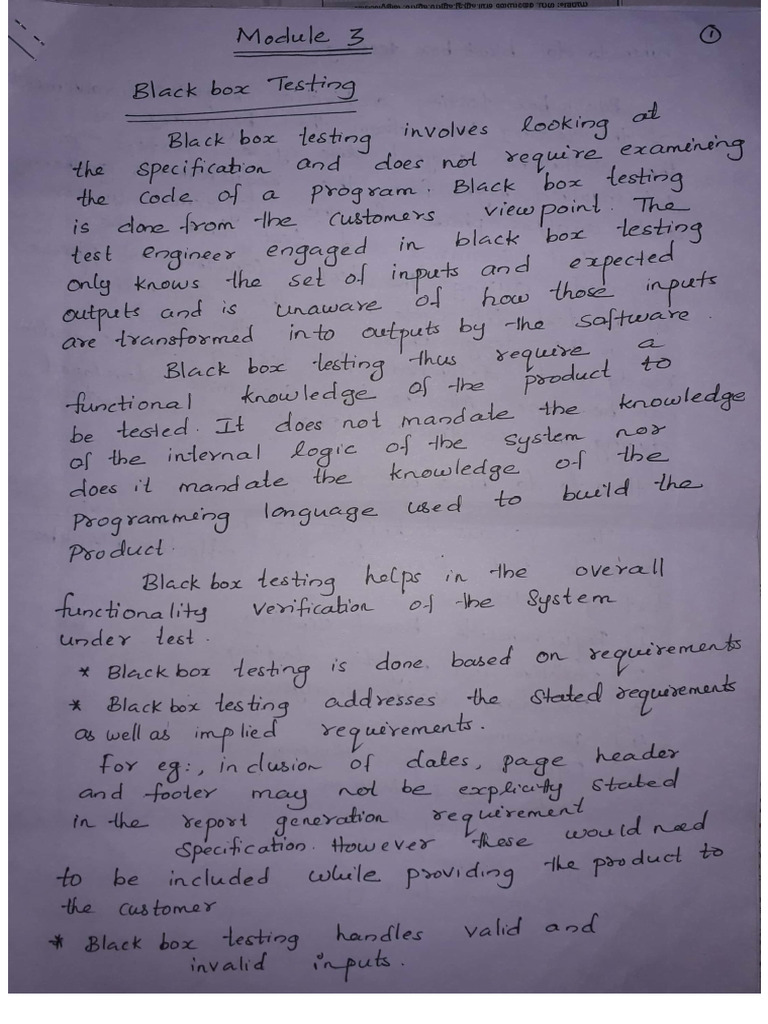 Module 3
1
Black box Testing
Black box testing involves looking at
the specification and does not require examining
the code of a program. Black box testing
is done from the customers viewpoint. The
test engineer engaged in black box testing
only knows the set of inputs and expected
outputs and is unaware of how those inputs
are transformed into outputs by the software.
Black box testing thus require a
functional knowledge of the product to
be tested. It does not mandate the knowledge
of the internal logic of the system nor
does it mandate the knowledge of the
programming language used to build the
product.
Black box testing helps in the overall
functionality verification of the system
under test.
* Black box testing is done based on requirements
* Black box testing addresses the stated requirements
as well as implied requirements.
For eg:, inclusion of dates, page header
and footer may not be explicitly stated
in the report generation requirement
specification. However these would need
to be included while providing the product to
the customer
* Black box testing handles valid and
invalid inputs.